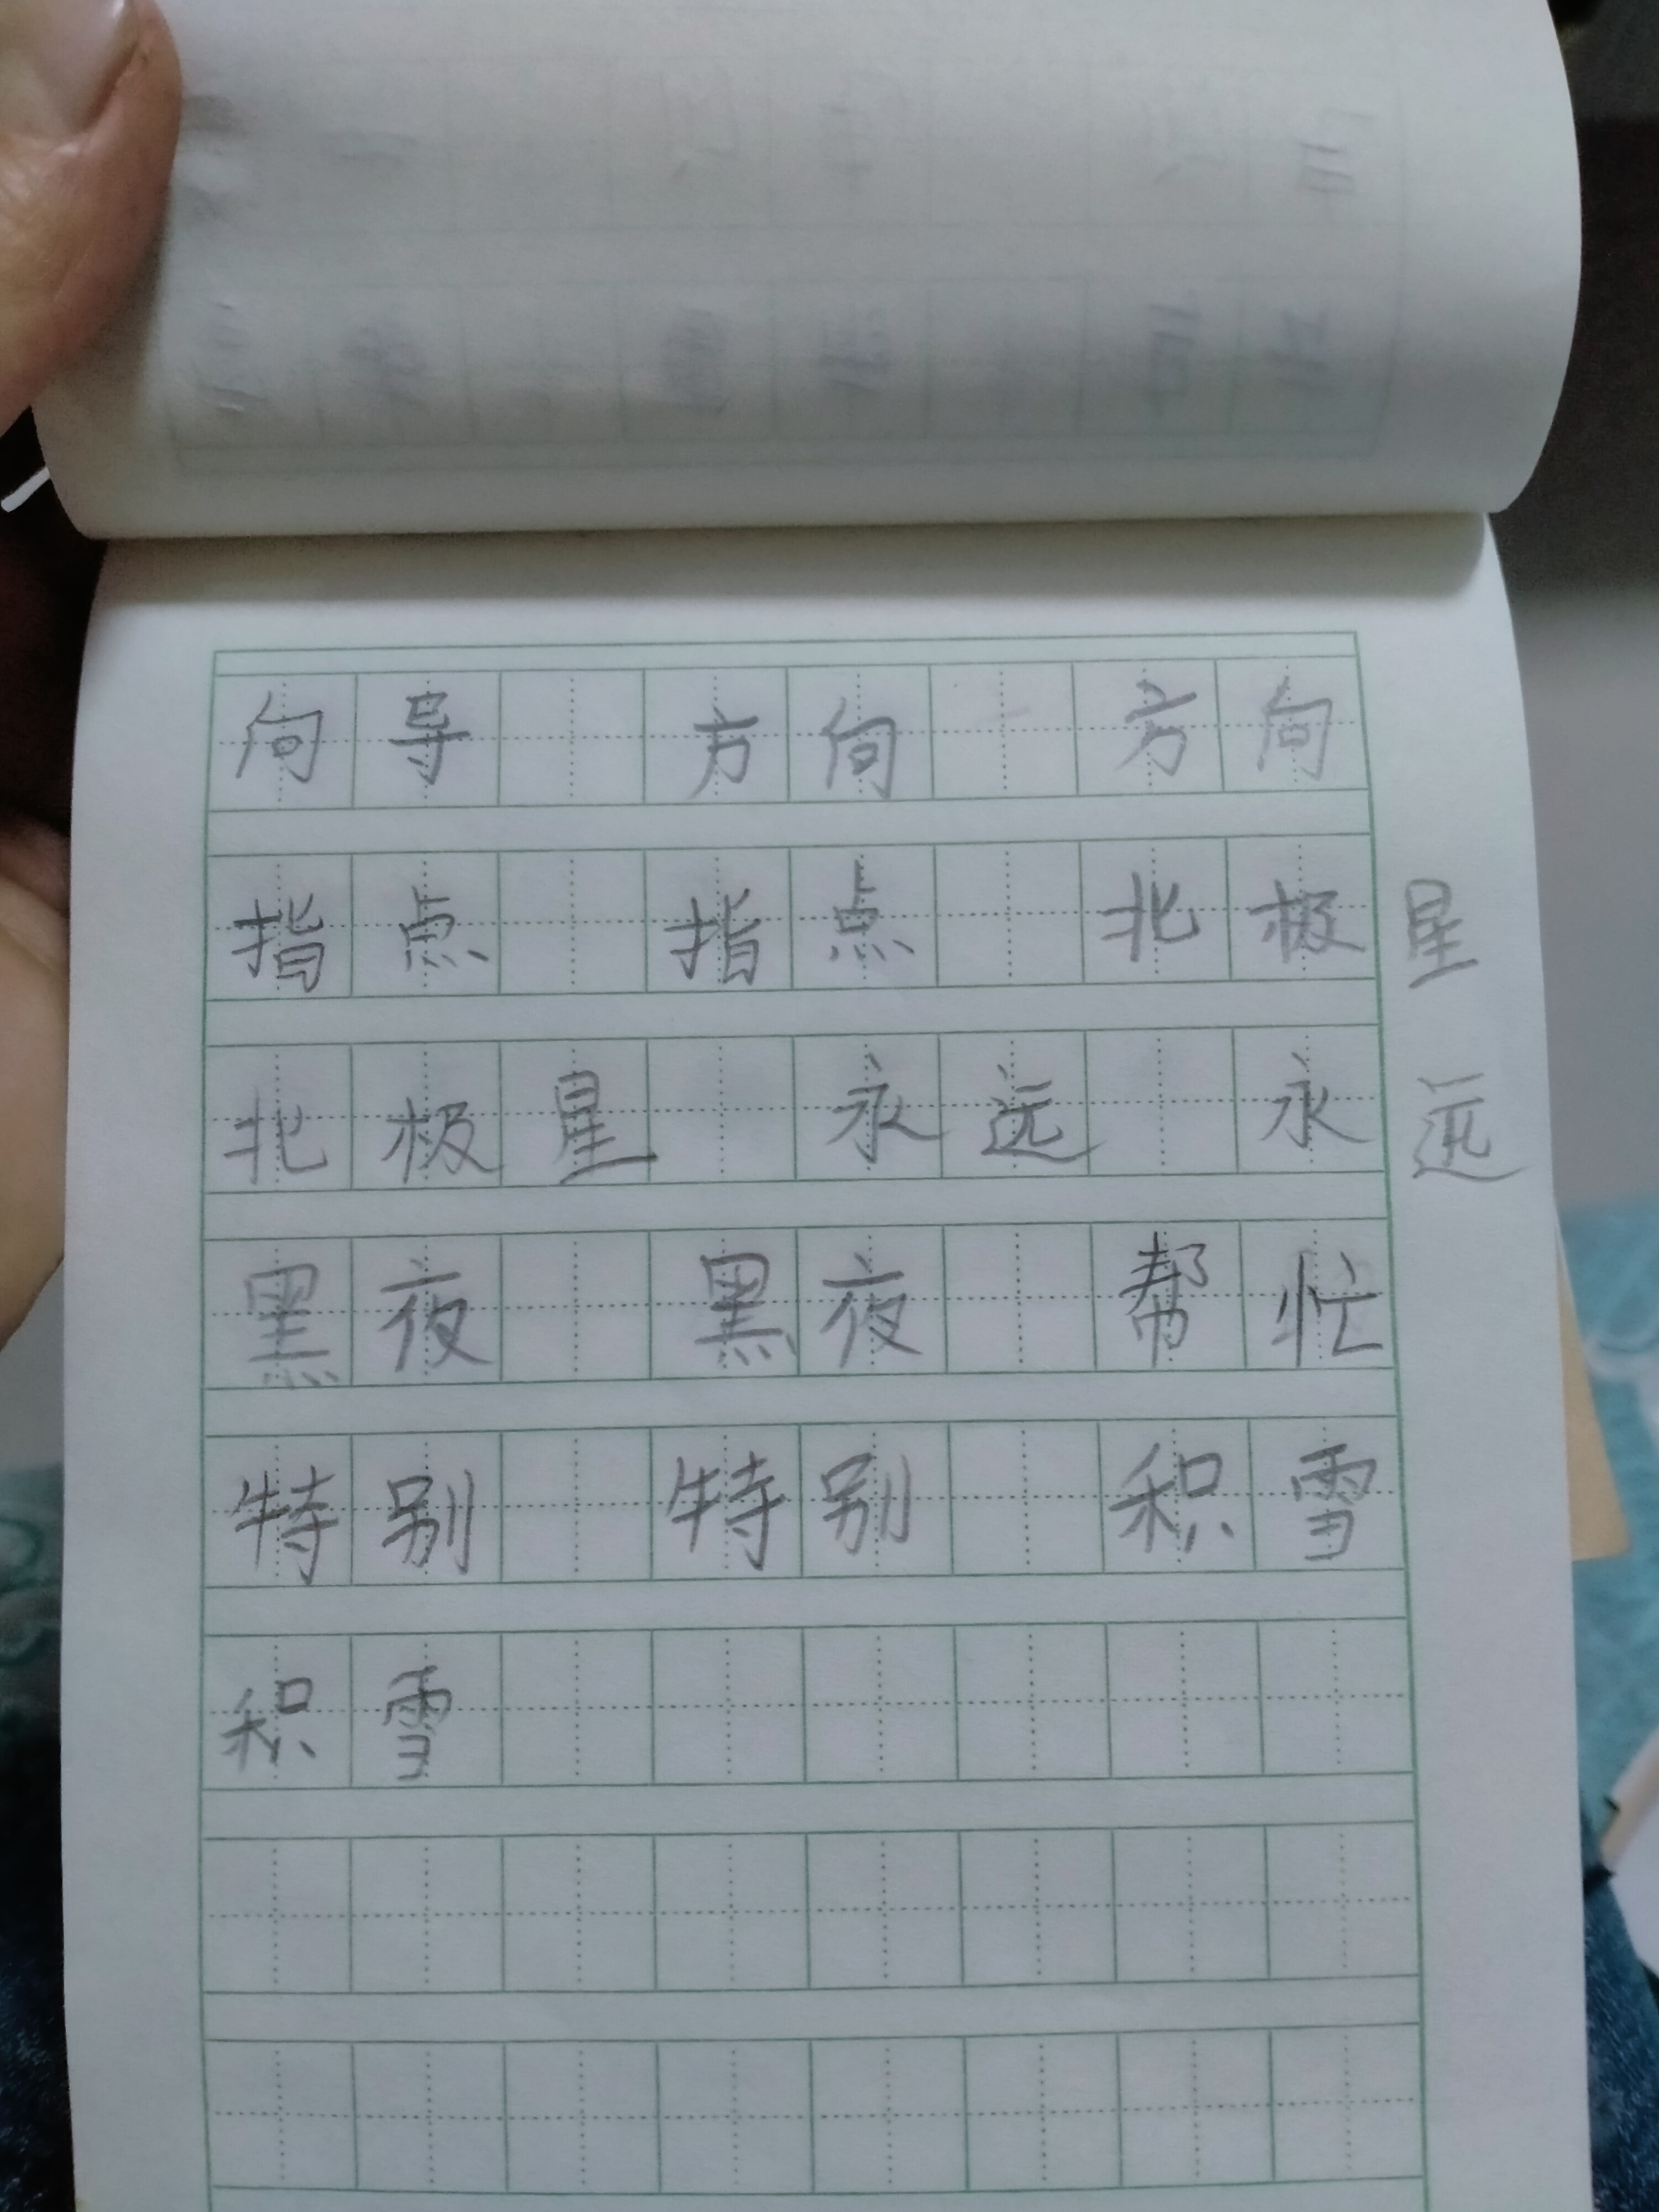 向导 方向 方向
指点 指点 北极星
北极星 永远 永远
黑夜 黑夜 帮忙
特别 特别 积雪
积雪